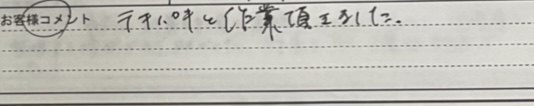 お客様コメント テキパキと作業頂きました。